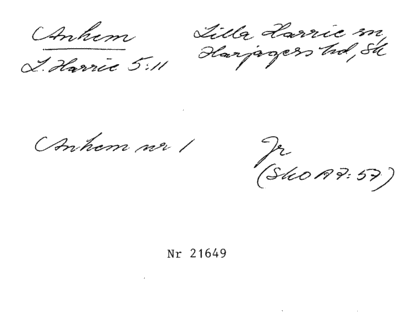 Anhem
L. Harrie 5:11
Lilla Harrie sn,
Harjagers hd, Sk
Anhem nr 1
Jr
(SkO A7:57)
Nr 21649